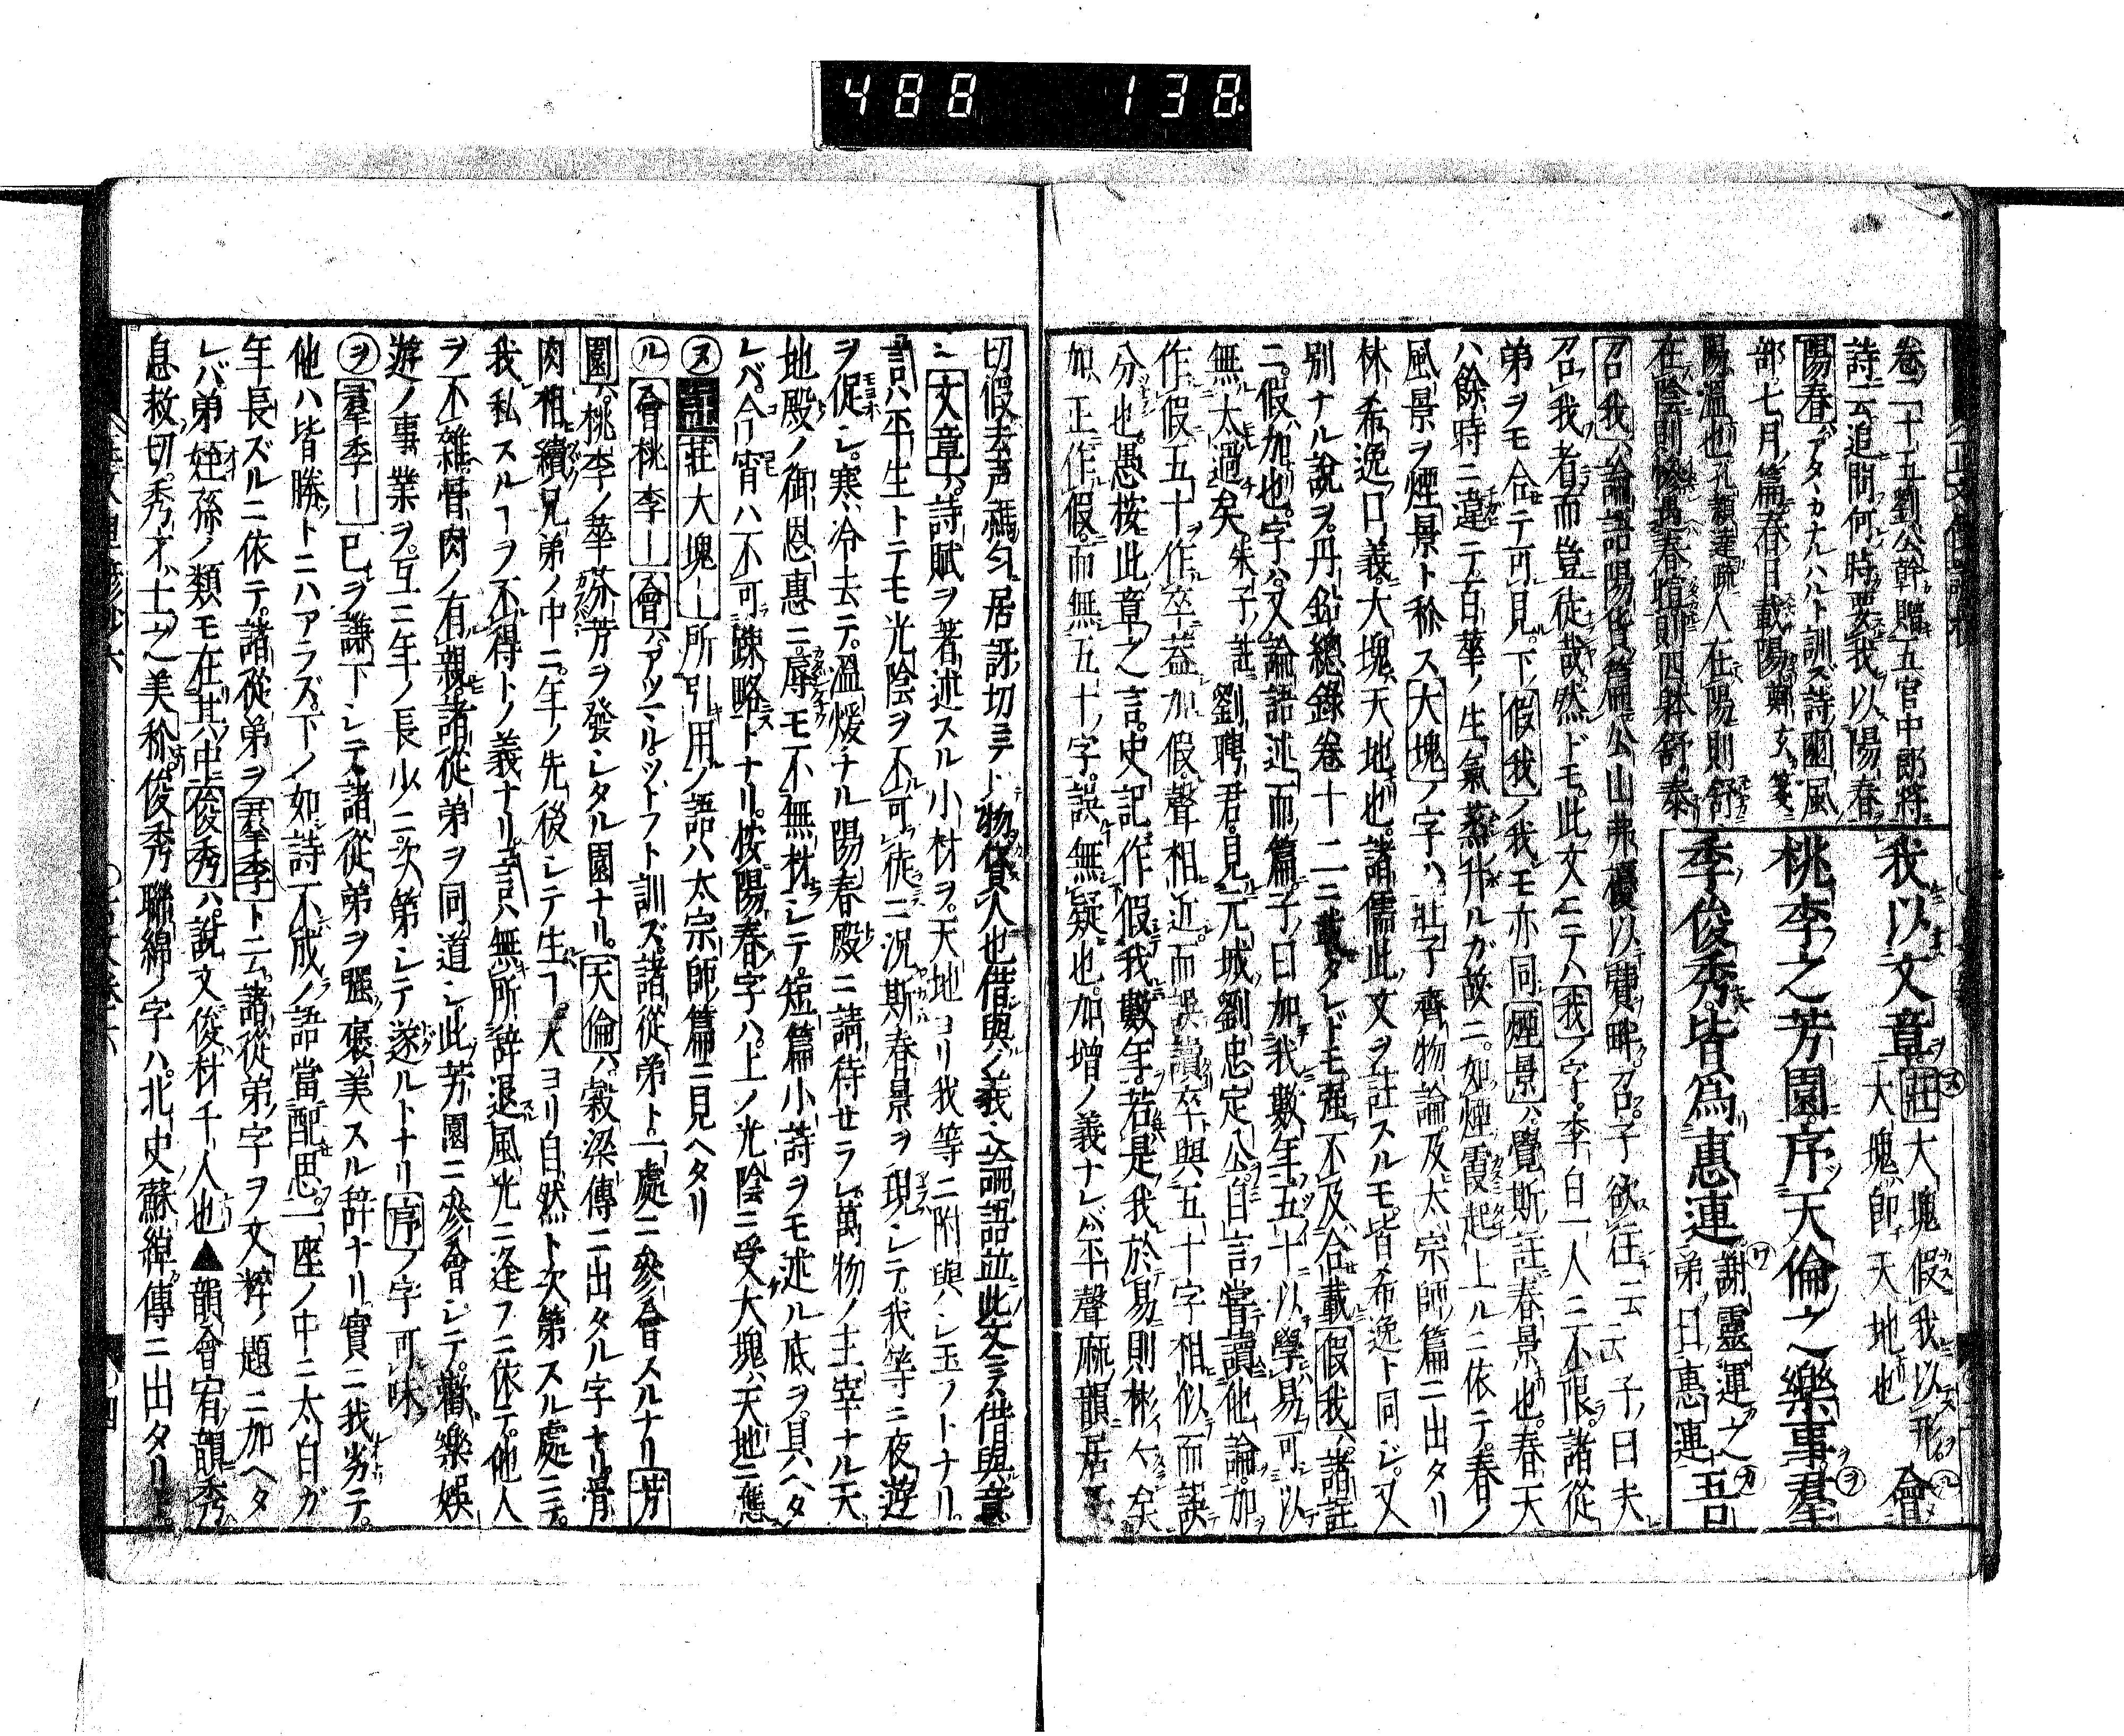 488 138
卷二十五劉公幹贈五官中郎將
詩云追問何時要我以陽春
陽春ハアタヽカナルハルト訓ズ詩豳風
部七月篇春日載陽鄭玄箋ニ
陽溫也孔穎達疏人在陽則舒
在陰則慘春暄則四躰舒泰
我以文章莊大塊假我以形大塊即天地也會
桃李之芳園序天倫之樂事羣
季俊秀皆爲惠連謝靈運之弟曰惠連吾
召我ハ論語陽貨篇公山弗擾以費畔召子欲往云云子ノ曰夫
召我者而豈徒哉然ドモ此文ニテハ我ノ字李白一人ニ不限諸從
弟ヲモ合テ可見下ノ假我ノ我モ亦同煙景ハ覺斯註春景也春天
ハ餘時ニ違テ百華ノ生氣蒸升ルガ故ニ如煙霞起上ルニ依テ春ノ
風景ヲ煙景ト称ス大塊ノ字ハ莊子齊物論及太宗師篇ニ出タリ
林希逸口義大塊天地也諸儒此文ヲ註スルモ皆希逸ト同ジ又
別ナル說ヲ丹鉛總錄卷十二ニ載タレドモ强不及合載假我ハ諸註
ニ假ハ加也字ハ又論語述而篇子曰加我數年五十以學易可以
無太過矣朱子註劉聘君見元城劉忠定公自言嘗讀他論加
作假五十作卒蓋加假聲相近而誤讀卒與五十字相似而誤
分也愚按此章之言史記作假我數年若是我於易則彬彬矣
加正作假而無五十字誤無疑也加增ノ義ナレバ平聲麻韻居
切假去声禡勻居訝切ニテ物貸人也借與ノ義論語並此文ニテハ借與意
ニ文章ハ詩賦ヲ著述スル小材ヲ天地ヨリ我等ニ附與ハシ玉フトナリ
言ハ平生トテモ光陰ヲ不可徒ニ況斯春景ヲ現シテ我等ニ夜遊
ヲ促シ寒冷去テ溫煖ナル陽春殿ニ請待セラレ萬物ノ主宰ナル天
地殿ノ御恩惠ニ辱モ不無材シテ短篇小詩ヲモ述ル底ヲ具ヘタ
レバ今宵ハ不可踈略トナリ按陽春字ハ上ノ光陰ニ受大塊ハ天地ニ應
ヌ註莊大塊ー所引用ノ語ハ太宗師篇ニ見ヘタリ
ル會桃李ー會ハアツマル、ツドフト訓ズ諸從弟ト一處ニ參會スルナリ芳
園ハ桃李ノ華芬芳ヲ發シタル園ナリ天倫ハ穀梁傳ニ出タル字ナリ骨
肉相續兄弟ノ中ニ年ノ先後シテ生ヿ天ヨリ自然ト次第スル處ニテ
我私スルヿヲ不得トノ義ナリ言ハ無所辞退風光ニ逢フニ依テ他人
ヲ不雜骨肉ノ有親諸從弟ヲ同道シ此芳園ニ參會シテ歡樂娛
遊ノ事業ヲ互ニ年ノ長少ニ次第シテ遂ルトナリ序ノ字可味
ヲ羣季ー已ヲ謙下シテ諸從弟ヲ强褒美スル辞ナリ實ニ我劣テ
他ハ皆勝トニハアラズ下ノ如詩不成ノ語當配思一座ノ中ニ太白ガ
年長ズルニ依テ諸從弟ヲ羣季ト云諸從弟ノ字ヲ文粹ノ題ニ加ヘタ
レバ弟姪孫ノ類モ在其中俊秀ハ說文俊材千人也▲韻會宥韻秀
息救切秀才士之美称俊秀聯綿ノ字ハ北史蘇綽傳ニ出タリ